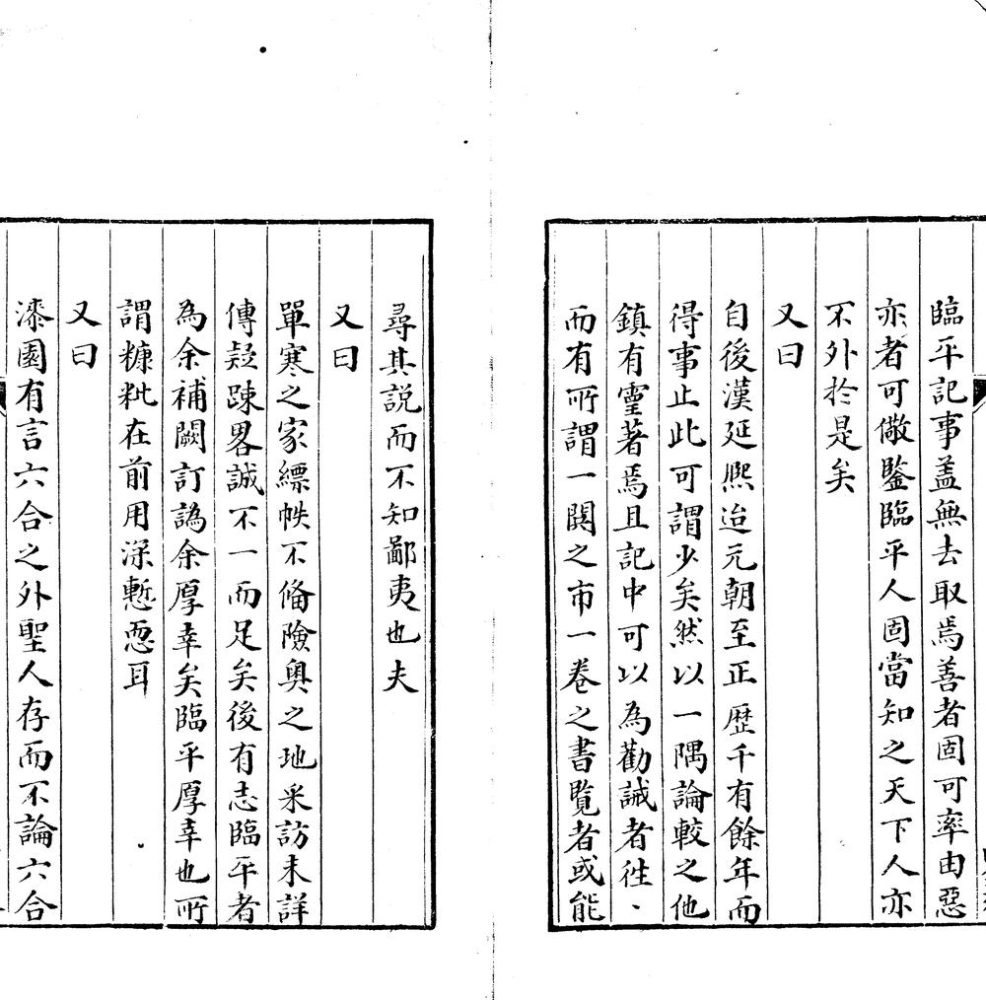 臨平記事蓋無去取焉善者固可率由惡
亦者可儆鑒臨平人固當知之天下人亦
不外於是矣
又曰
自後漢延熈迨元朝至正歴千有餘年而
得事止此可謂少矣然以一隅論較之他
鎮有靈著焉且記中可以為勸誡者徃、
而有所謂一閧之市一卷之書覧者或能
尋其說而不知鄙夷也夫
又曰
單寒之家縹帙不偹險奥之地采訪未詳
傳疑踈畧誠不一而足矣後有志臨平者
為余補闕訂譌余厚幸矣臨平厚幸也所
謂糠粃在前用深慙恧耳
又曰
漆園有言六合之外聖人存而不論六合